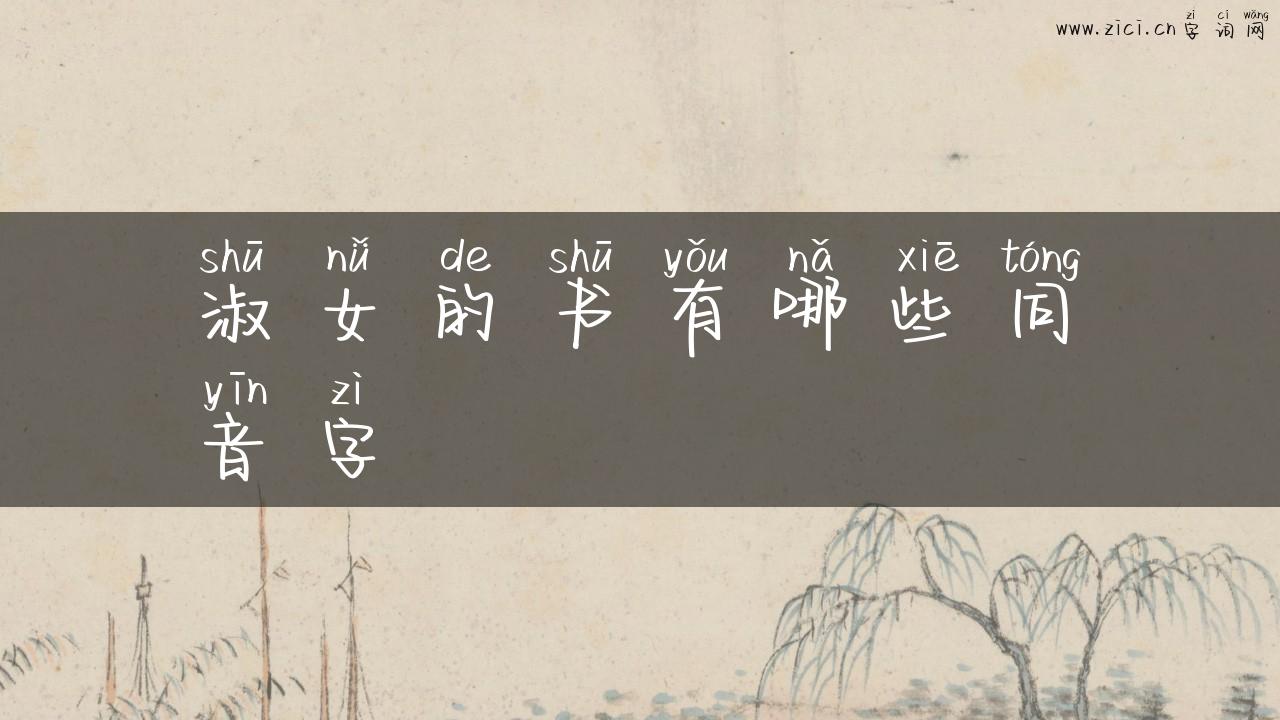 zì cí wǎng
www.zici.cn字词网
shū nǚ de shū yǒu nǎ xiē tóng
淑女的书有哪些同
yīn zì
音字